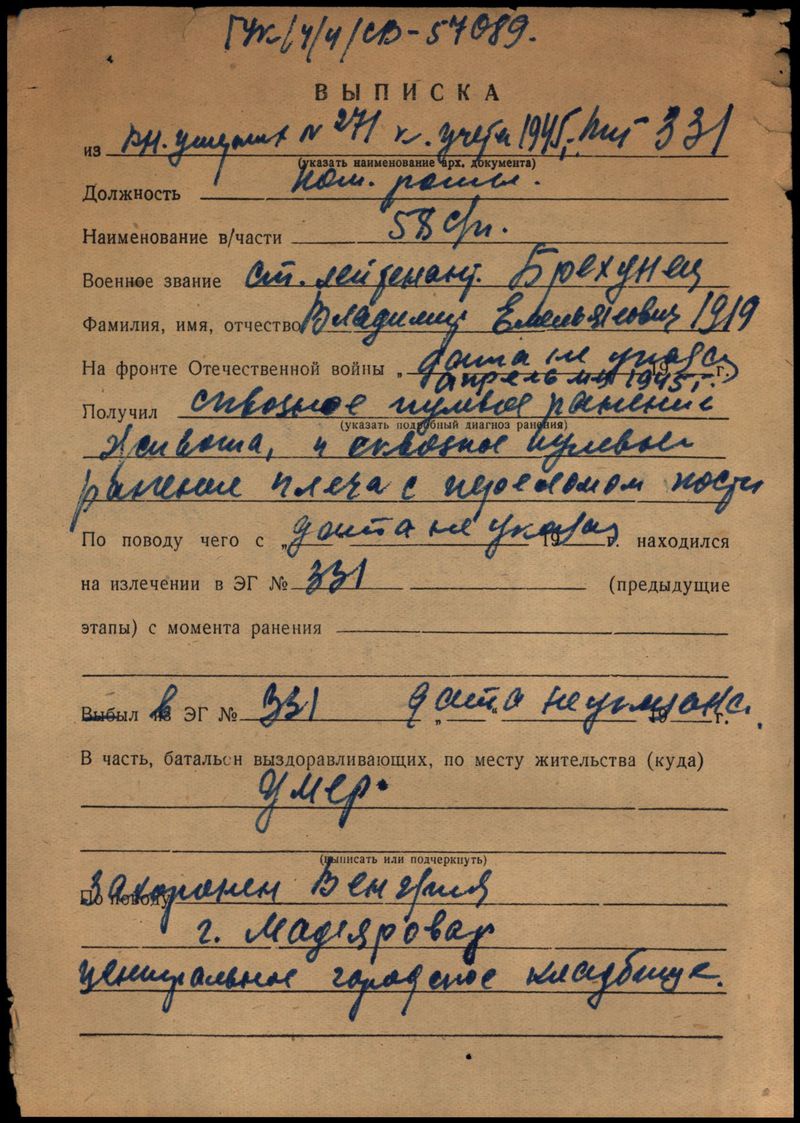 ГУК/4/4/СВ-57089.
ВЫПИСКА
из кн. умерших № 271 к. учета 1945 г. 331
(указать наименование арх. документа)
Должность ком. роты.
Наименование в/части 58 сп.
Военное звание ст. лейтенант. Брехунец
Фамилия, имя, отчество Владимир Емельянович 1919
На фронте Отечественной войны „ дата не указ 19 г.
апрель м-ц 1945 г.
Получил сквозное пулевое ранение
(указать подробный диагноз ранения)
живота, и сквозное пулевое
ранение плеча с переломом кости
По поводу чего с „ дата не указан 19 г. находился
на излечении в ЭГ № 331 (предыдущие
этапы) с момента ранения
Выбыл из в ЭГ № 331 „ “ дата не указана. 19 г.
В часть, батальон выздоравливающих, по месту жительства (куда)
умер.
(выписать или подчеркнуть)
По поводу захоронен Венгрия
г. Мадьяровар
центральное городское кладбище.